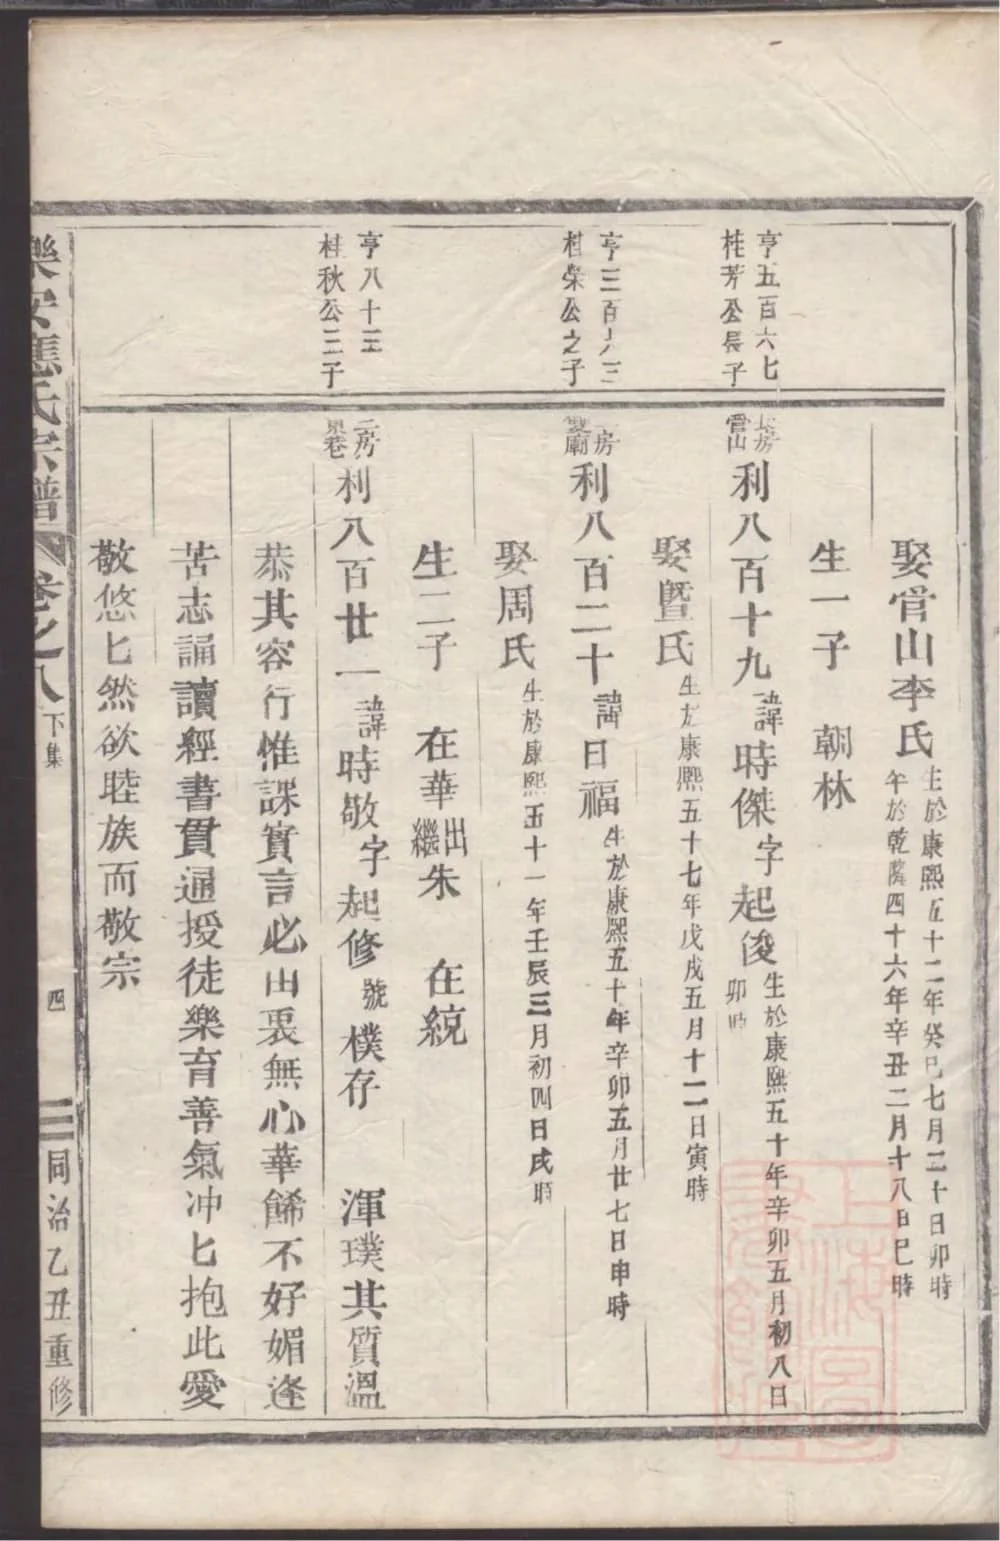 娶官山李氏生於康熙五十二年癸巳七月二十日卯時
卒於乾隆四十六年辛丑二月十八日巳時
生一子 朝林
亨五百六七
桂芳公長子
長房
官山
利八百十九諱時傑字起俊生於康熙五十年辛卯五月初八日
卯時
娶暨氏生於康熙五十七年戊戌五月十二日寅時
亨三百八三
桂榮公之子
二房
雙廟
利八百二十諱日福生於康熙五十年辛卯五月廿七日申時
娶周氏生於康熙五十一年壬辰三月初四日戌時
生二子 在華出繼朱 在統
亨八十三
桂秋公二子
三房
東巷
利八百廿一諱時敬字起修號樸存 渾璞其質溫
恭其容行惟課實言必由衷無心華餙不好媚逢
苦志誦讀經書貫通授徒樂育善氣冲匕抱此愛
敬悠匕然欲睦族而敬宗
樂安應氏宗譜 卷之八下集 四 同治乙丑重修
上海圖書館藏